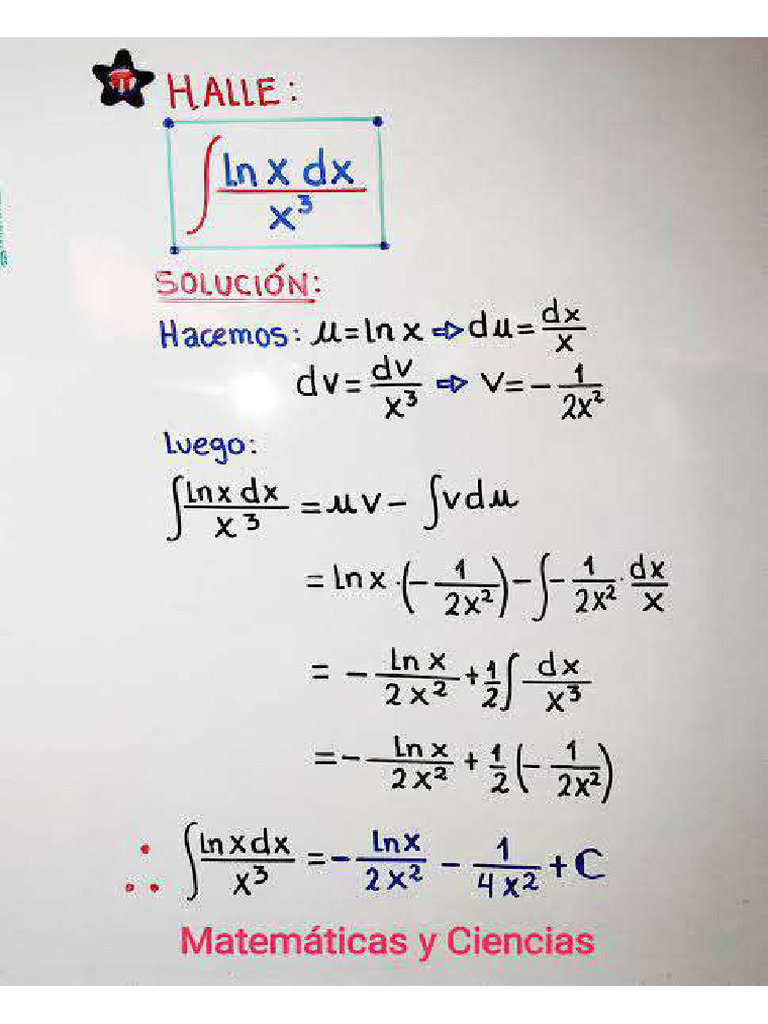 π HALLE:
∫ ln x dx / x³
SOLUCIÓN:
Hacemos: μ = ln x ⇒ dμ = dx / x
dv = dv / x³ ⇒ v = - 1 / 2x²
Luego:
∫ ln x dx / x³ = μv - ∫ v dμ
= ln x · (- 1 / 2x²) - ∫ - 1 / 2x² · dx / x
= - ln x / 2x² + 1/2 ∫ dx / x³
= - ln x / 2x² + 1/2 (- 1 / 2x²)
∴ ∫ ln x dx / x³ = - ln x / 2x² - 1 / 4x² + C
Matemáticas y Ciencias